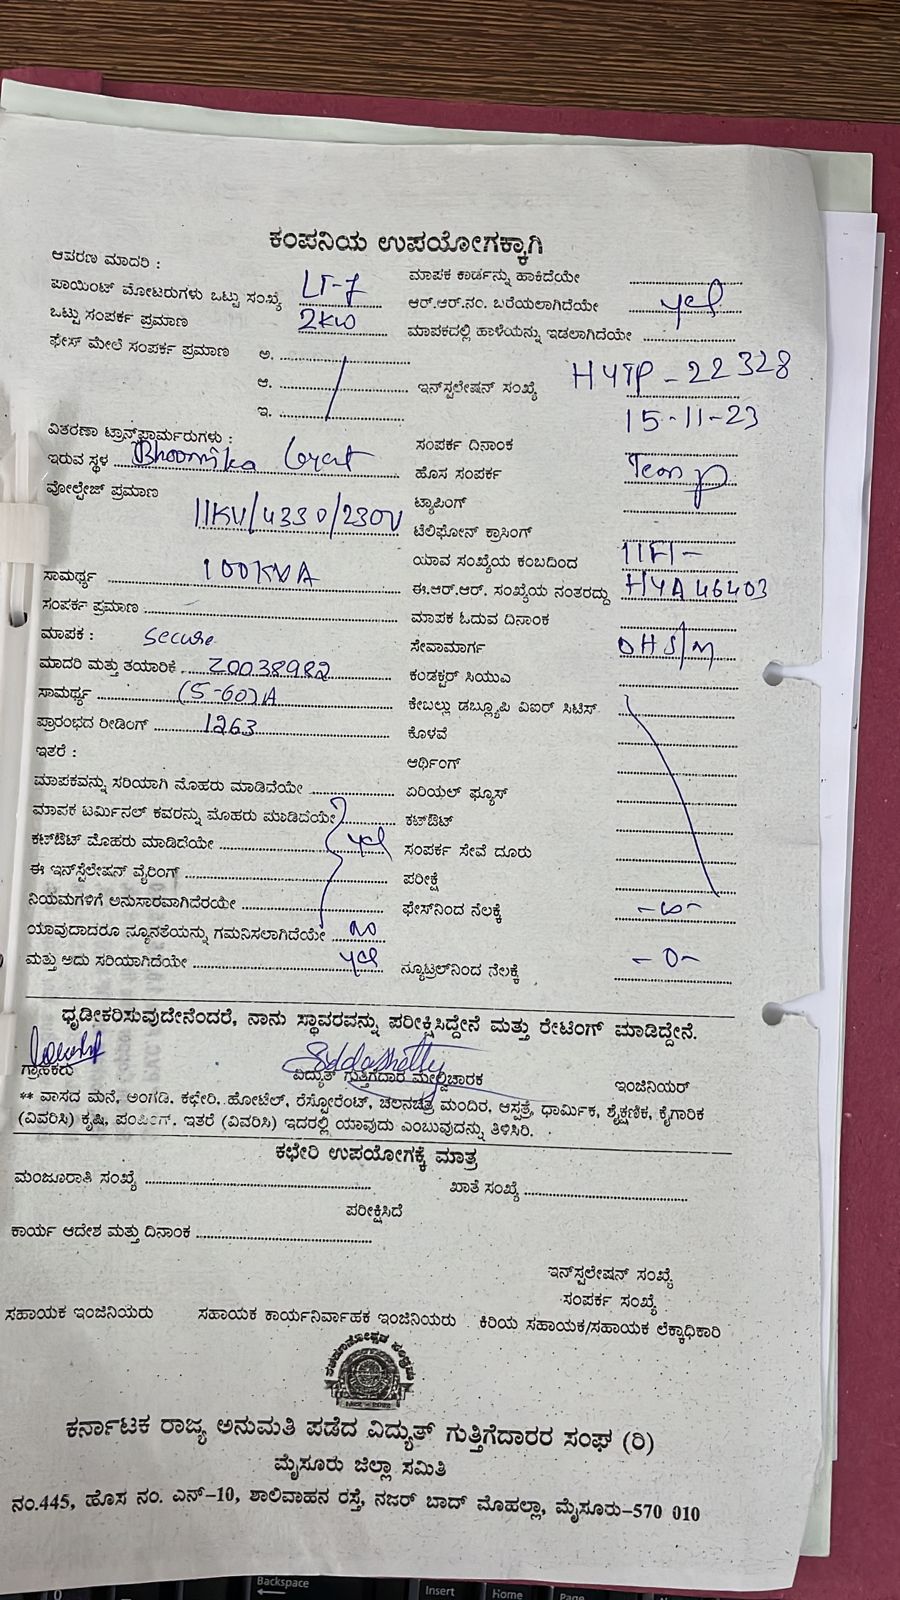 ಕಂಪನಿಯ ಉಪಯೋಗಕ್ಕಾಗಿ
ಆವರಣ ಮಾದರಿ :
ಪಾಯಿಂಟ್ ಮೋಟರುಗಳು ಒಟ್ಟು ಸಂಖ್ಯೆ LT-7
ಒಟ್ಟು ಸಂಪರ್ಕ ಪ್ರಮಾಣ 2KW
ಫೇಸ್ ಮೇಲೆ ಸಂಪರ್ಕ ಪ್ರಮಾಣ ಅ.
ಆ.
ಇ.
ವಿತರಣಾ ಟ್ರಾನ್ಸ್‌ಫಾರ್ಮರುಗಳು :
ಇರುವ ಸ್ಥಳ Bhoomika
ವೋಲ್ಟೇಜ್ ಪ್ರಮಾಣ
11KV/433 0/230V
ಸಾಮರ್ಥ್ಯ 100KVA
ಸಂಪರ್ಕ ಪ್ರಮಾಣ
ಮಾಪಕ : Secure
ಮಾದರಿ ಮತ್ತು ತಯಾರಿಕೆ Z0038982
ಸಾಮರ್ಥ್ಯ (5-60)A
ಪ್ರಾರಂಭದ ರೀಡಿಂಗ್ 1263
ಇತರೆ :
ಮಾಪಕವನ್ನು ಸರಿಯಾಗಿ ಮೊಹರು ಮಾಡಿದೆಯೇ
ಮಾಪಕ ಟರ್ಮಿನಲ್ ಕವರನ್ನು ಮೊಹರು ಮಾಡಿದೆಯೇ
ಕಟ್‌ಔಟ್ ಮೊಹರು ಮಾಡಿದೆಯೇ yes
ಈ ಇನ್‌ಸ್ಟಲೇಷನ್ ವೈರಿಂಗ್
ನಿಯಮಗಳಿಗೆ ಅನುಸಾರವಾಗಿದೆರಯೇ
ಯಾವುದಾದರೂ ನ್ಯೂನತೆಯನ್ನು ಗಮನಿಸಲಾಗಿದೆಯೇ no
ಮತ್ತು ಅದು ಸರಿಯಾಗಿದೆಯೇ yes
ಮಾಪಕ ಕಾರ್ಡನ್ನು ಹಾಕಿದೆಯೇ
ಆರ್.ಆರ್.ನಂ. ಬರೆಯಲಾಗಿದೆಯೇ yes
ಮಾಪಕದಲ್ಲಿ ಹಾಳೆಯನ್ನು ಇಡಲಾಗಿದೆಯೇ
ಇನ್‌ಸ್ಟಲೇಷನ್ ಸಂಖ್ಯೆ HYTP-22328
15-11-23
ಸಂಪರ್ಕ ದಿನಾಂಕ
ಹೊಸ ಸಂಪರ್ಕ
ಟ್ಯಾಪಿಂಗ್
ಟೆಲಿಫೋನ್ ಕ್ರಾಸಿಂಗ್
ಯಾವ ಸಂಖ್ಯೆಯ ಕಂಬದಿಂದ
ಈ.ಆರ್.ಆರ್. ಸಂಖ್ಯೆಯ ನಂತರದ್ದು HYA46403
ಮಾಪಕ ಓದುವ ದಿನಾಂಕ
ಸೇವಾಮಾರ್ಗ OHS/M
ಕಂಡಕ್ಟರ್ ಸಿಯುಎ
ಕೇಬಲ್ಲು ಡಬ್ಲ್ಯೂಪಿ ವಿಐಆರ್ ಸಿಟಿಸ್
ಕೊಳವೆ
ಆರ್ಥಿಂಗ್
ಏರಿಯಲ್ ಫ್ಯೂಸ್
ಕಟ್‌ಔಟ್
ಸಂಪರ್ಕ ಸೇವೆ ದೂರು
ಪರೀಕ್ಷೆ
ಫೇಸ್‌ನಿಂದ ನೆಲಕ್ಕೆ -∞-
ನ್ಯೂಟ್ರಲ್‌ನಿಂದ ನೆಲಕ್ಕೆ -0-
ಧೃಡೀಕರಿಸುವುದೇನೆಂದರೆ, ನಾನು ಸ್ಥಾವರವನ್ನು ಪರೀಕ್ಷಿಸಿದ್ದೇನೆ ಮತ್ತು ರೇಟಿಂಗ್ ಮಾಡಿದ್ದೇನೆ.
Siddashetty
ಗ್ರಾಹಕರು ವಿದ್ಯುತ್ ಗುತ್ತಿಗೆದಾರ ಮೇಲ್ವಿಚಾರಕ ಇಂಜಿನಿಯರ್
** ವಾಸದ ಮನೆ, ಅಂಗಡಿ. ಕಛೇರಿ. ಹೋಟೆಲ್, ರೆಸ್ಟೋರೆಂಟ್, ಚಲನಚಿತ್ರ ಮಂದಿರ, ಆಸ್ಪತ್ರೆ, ಧಾರ್ಮಿಕ, ಶೈಕ್ಷಣಿಕ, ಕೈಗಾರಿಕ
(ವಿವರಿಸಿ) ಕೃಷಿ, ಪಂಪಿಂಗ್. ಇತರೆ (ವಿವರಿಸಿ) ಇದರಲ್ಲಿ ಯಾವುದು ಎಂಬುವುದನ್ನು ತಿಳಿಸಿರಿ.
ಕಛೇರಿ ಉಪಯೋಗಕ್ಕೆ ಮಾತ್ರ
ಮಂಜೂರಾತಿ ಸಂಖ್ಯೆ ಖಾತೆ ಸಂಖ್ಯೆ
ಪರೀಕ್ಷಿಸಿದೆ
ಕಾರ್ಯ ಆದೇಶ ಮತ್ತು ದಿನಾಂಕ
ಇನ್‌ಸ್ಟಲೇಷನ್ ಸಂಖ್ಯೆ
ಸಂಪರ್ಕ ಸಂಖ್ಯೆ
ಸಹಾಯಕ ಇಂಜಿನಿಯರು ಸಹಾಯಕ ಕಾರ್ಯನಿರ್ವಾಹಕ ಇಂಜಿನಿಯರು ಕಿರಿಯ ಸಹಾಯಕ/ಸಹಾಯಕ ಲೆಕ್ಕಾಧಿಕಾರಿ
ಕರ್ನಾಟಕ ರಾಜ್ಯ ಅನುಮತಿ ಪಡೆದ ವಿದ್ಯುತ್ ಗುತ್ತಿಗೆದಾರರ ಸಂಘ (ರಿ)
ಮೈಸೂರು ಜಿಲ್ಲಾ ಸಮಿತಿ
ನಂ.445, ಹೊಸ ನಂ. ಎನ್-10, ಶಾಲಿವಾಹನ ರಸ್ತೆ, ನಜರ್ ಬಾದ್ ಮೊಹಲ್ಲಾ, ಮೈಸೂರು-570 010
Backspace
Insert
Home